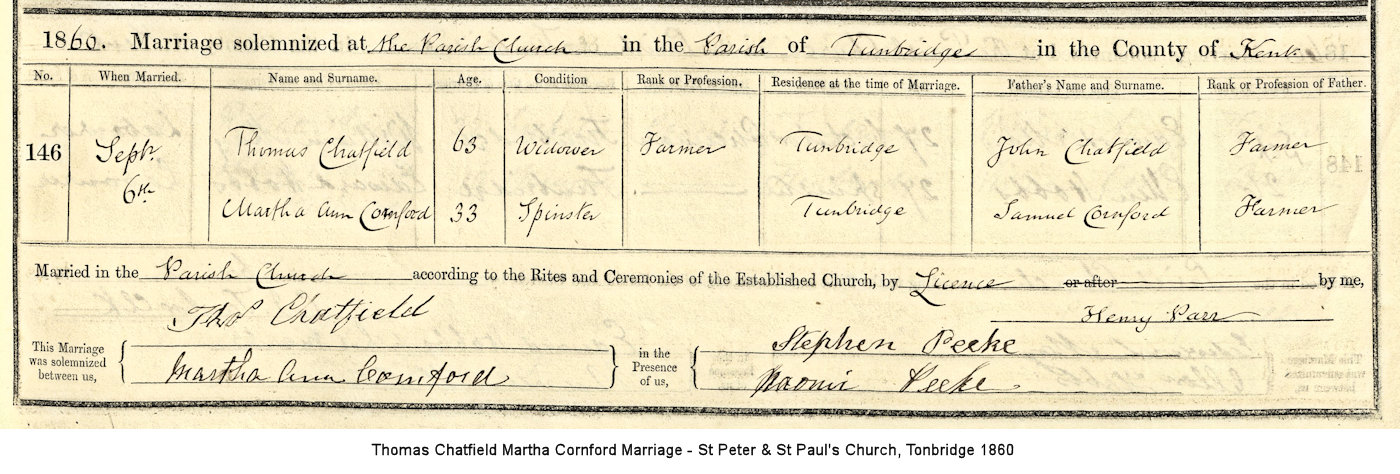 1860. Marriage solemnized at the Parish Church in the Parish of Tunbridge in the County of Kent
No. When Married. Name and Surname. Age. Condition Rank or Profession. Residence at the time of Marriage. Father's Name and Surname. Rank or Profession of Father.
146 Septr. 6th Thomas Chatfield 63 Widower Farmer Tunbridge John Chatfield Farmer
Martha Ann Cornford 33 Spinster Tunbridge Samuel Cornford Farmer
Married in the Parish Church according to the Rites and Ceremonies of the Established Church, by Licence or after by me,
Henry Parr
Thos Chatfield
Martha Ann Cornford
This Marriage
was solemnized
between us,
in the
Presence
of us,
Stephen Peeke
Naomi Peeke
Thomas Chatfield Martha Cornford Marriage - St Peter & St Paul's Church, Tonbridge 1860